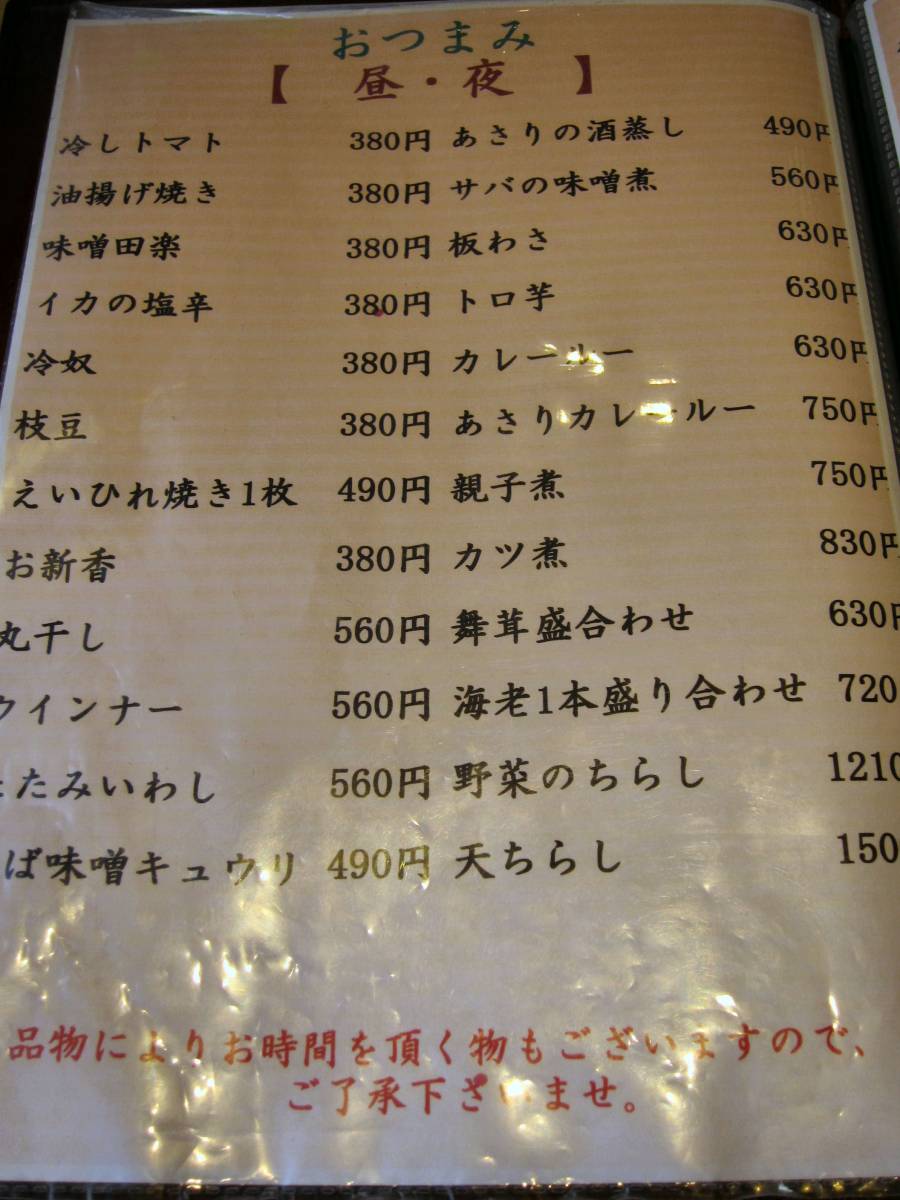 おつまみ
【 昼・夜 】
冷しトマト 380円 あさりの酒蒸し 490円
油揚げ焼き 380円 サバの味噌煮 560円
味噌田楽 380円 板わさ 630円
イカの塩辛 380円 トロ芋 630円
冷奴 380円 カレールー 630円
枝豆 380円 あさりカレールー 750円
えいひれ焼き1枚 490円 親子煮 750円
お新香 380円 カツ煮 830円
丸干し 560円 舞茸盛合わせ 630円
ウインナー 560円 海老1本盛り合わせ 720
たたみいわし 560円 野菜のちらし 1210
ば味噌キュウリ 490円 天ちらし 150
品物によりお時間を頂く物もございますので、
ご了承下さいませ。